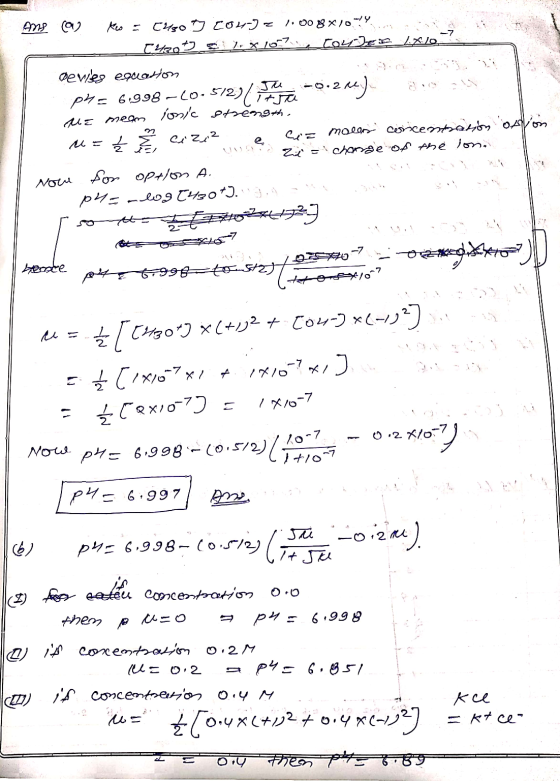 Ans (a) Kw = [H30+] [OH-] = 1.008×10^-14
[H30+] = 1.×10^-7, [OH-] = 1×10^-7
Devies equation
pH = 6.998-(0.512)(√μ/(1+√μ) -0.2μ)
μ= mean ionic strength.
μ = 1/2 Σ_{i=1}^{n} Ci Zi^2 & Ci= molar concentration of ion
Zi = charge of the ion.
Now for option A.
pH= -log[H30+].
so
hence
μ = 1/2 [[H30+] ×(+1)^2 + [OH-] ×(-1)^2]
= 1/2 [1×10^-7 ×1 + 1×10^-7 ×1]
= 1/2 [2×10^-7] = 1×10^-7
Now pH= 6.998-(0.512)(10^-7/(1+10^-7) - 0.2×10^-7)
pH= 6.997 Ans.
(b) pH= 6.998-(0.512)(√μ/(1+√μ) -0.2μ).
(I) if concentration 0.0
then μ=0 ⇒ pH = 6.998
(II) if concentration 0.2M
μ= 0.2 ⇒ pH= 6.851
(III) if concentration 0.4 M KCl
μ= 1/2 [0.4×(+1)^2 + 0.4×(-1)^2] = K+ Cl-
I = 0.4 then pH= 6.89